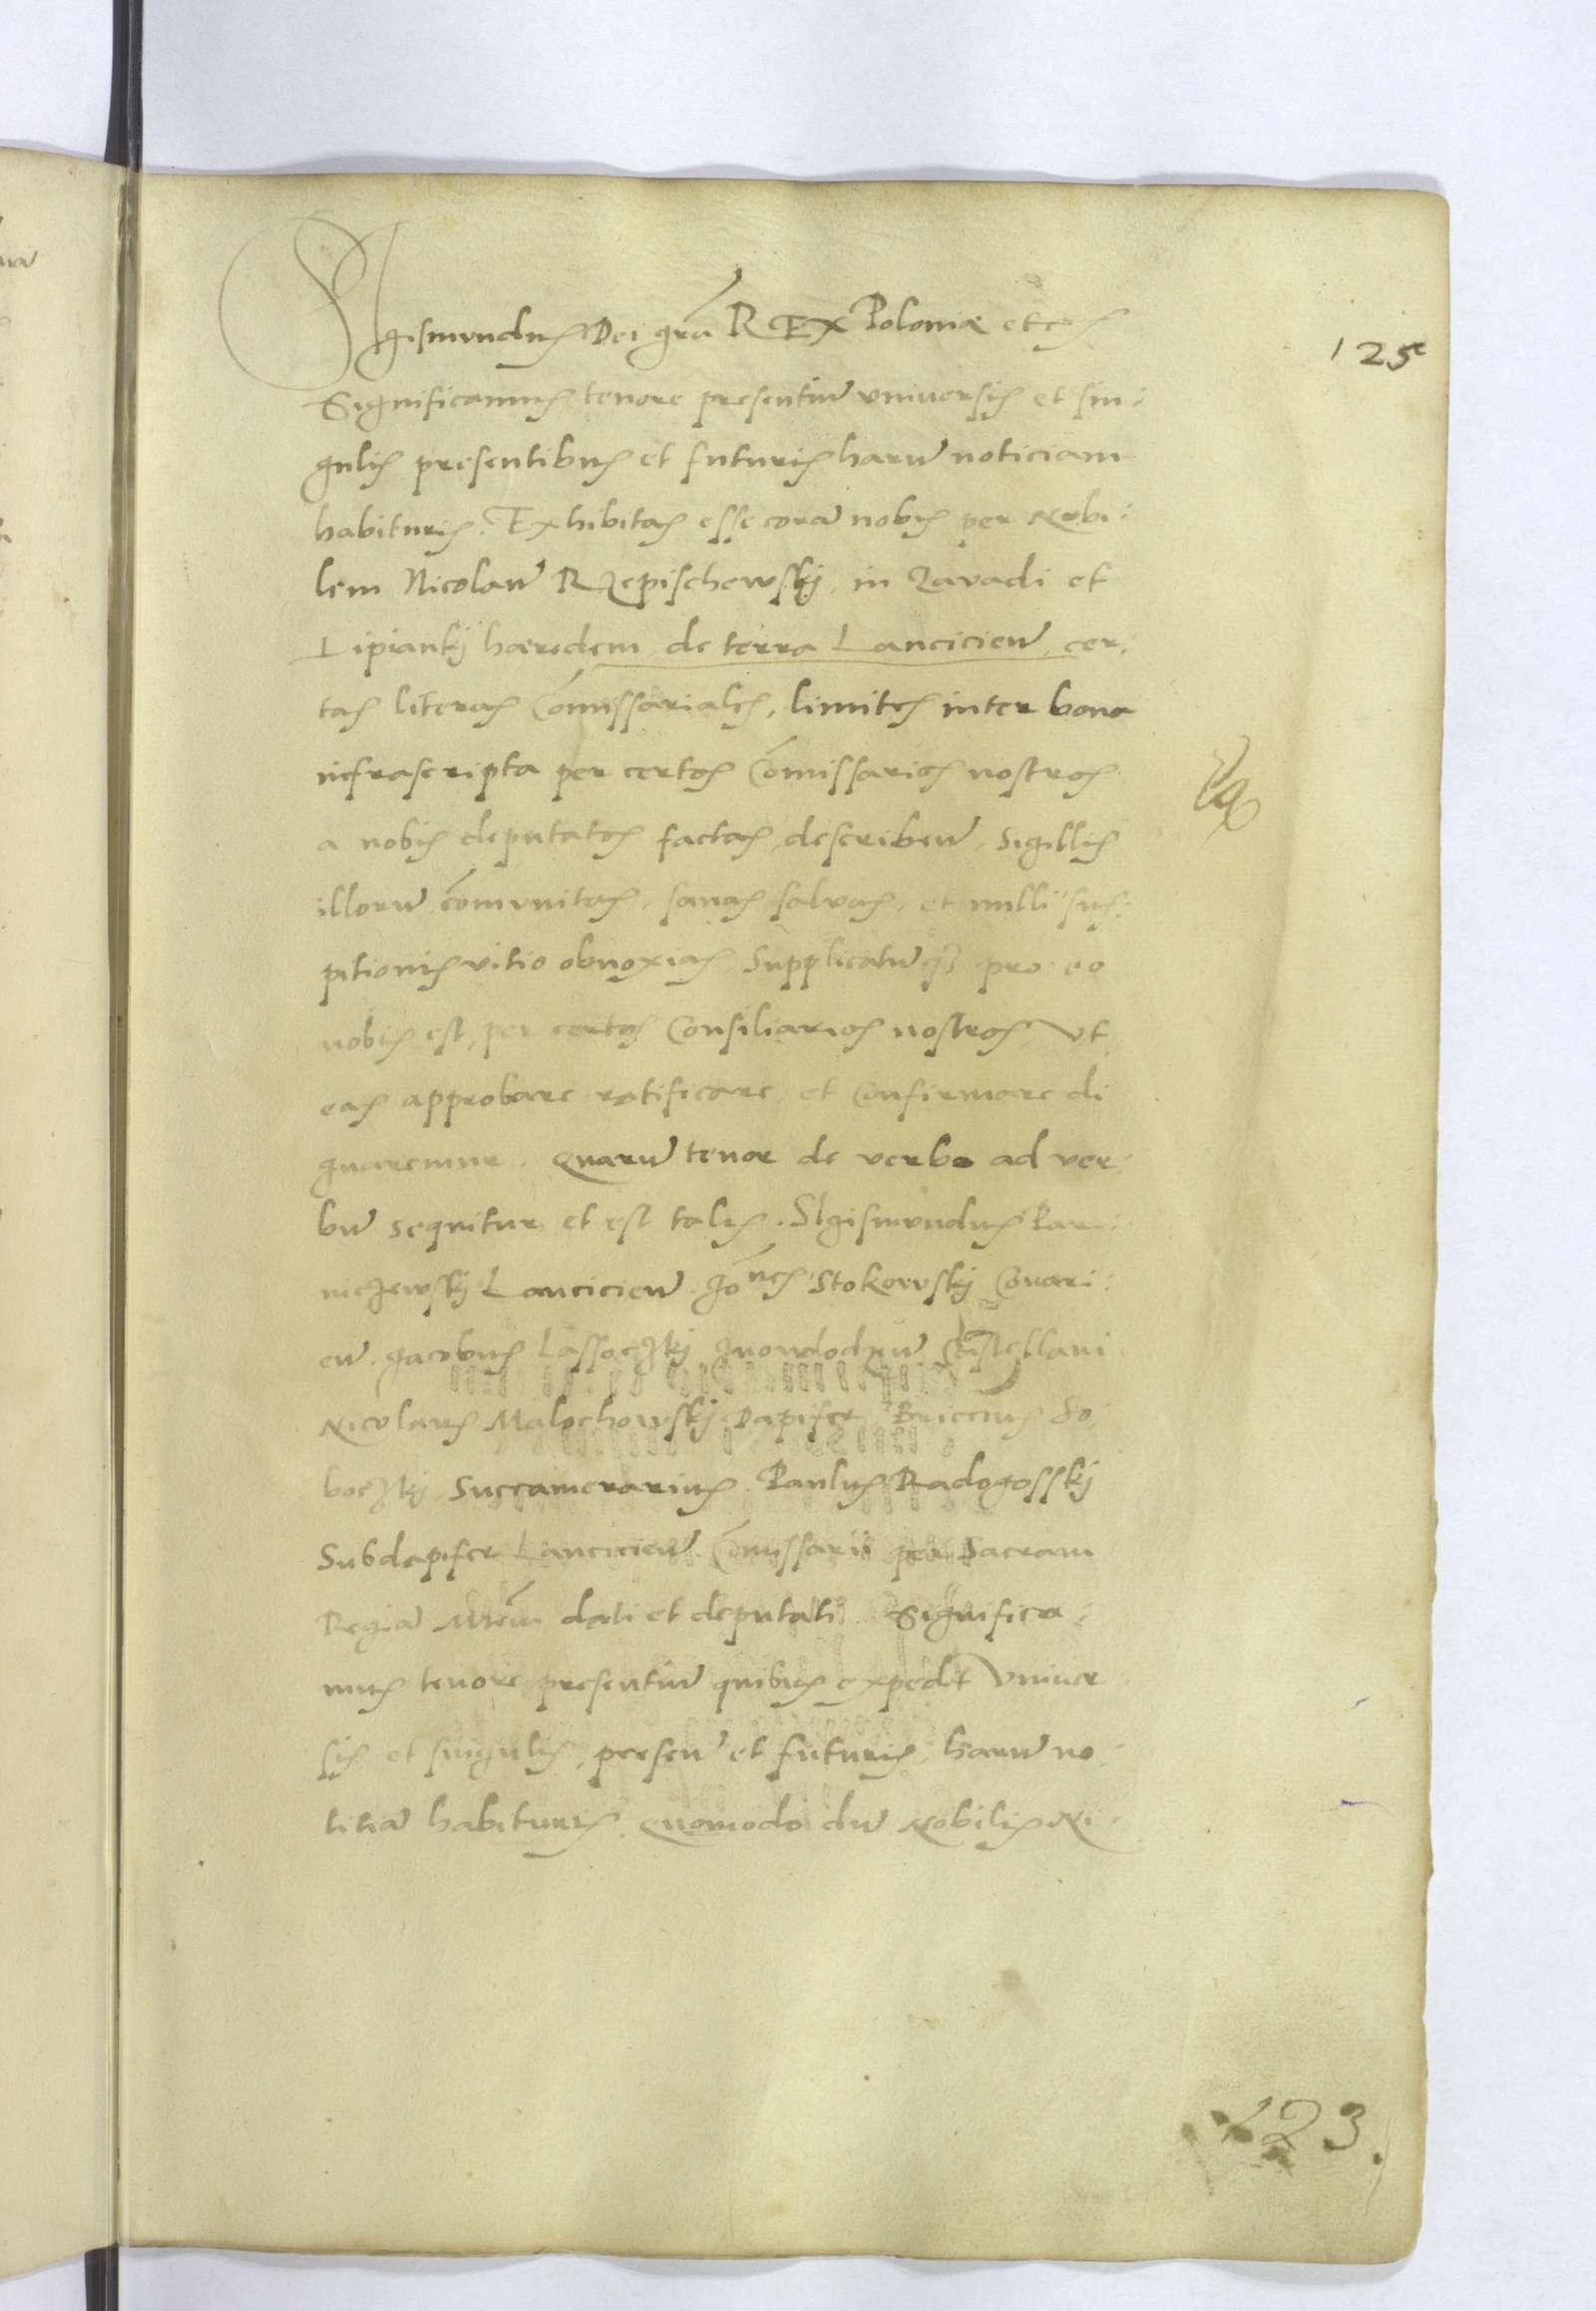 SIgismundus Dei grã REX Poloniæ etc̃
125
Significamus tenore presentiũ vniuersis et sin:
gulis presentibus et futuris harũ noticiam
habituris. Exhibitas esse corã nobis per Nobi:
lem Nicolaũ Rzepischewskij in Zavadi et
Lipiankj hæredem de terra Lancicieñ cer:
tas literas Cõmissariales, limites inter bona
infrascripta per certos Cõmissarios nostros
a nobis deputatos factas, describeñ, sigillis
illorũ cõmunitas, sanas salvas, et nulli sus:
pitionis vitio obnoxias, Supplicatũq3 pro eo
nobis est, per certos Consiliarios nostros vt
eas approbare ratificare et Confirmare di
gnaremur. Quarũ tenor de verbo ad ver:
bũ sequitur et est talis. SIgismundus Par:
niczewskij Lancicieñ Joñes Stokowskj Conari:
eñ. Jacobus Lassoczkj Jnowlodzeñ Castellani
Nicolaus Malochowskj Dapifer, Briccius So:
boczkj Succamerarius Paulus Radogosskj
Subdapifer Lancicieñ Cõmissarii per Sacram
Regiã Mtẽm dati et deputati Significa:
mus tenore presentiũ quibus expedit vniuer
sis et singulis, preseñ et futuris, harũ no:
titiã habituris Quomodo dũ Nobilis Ni
123.